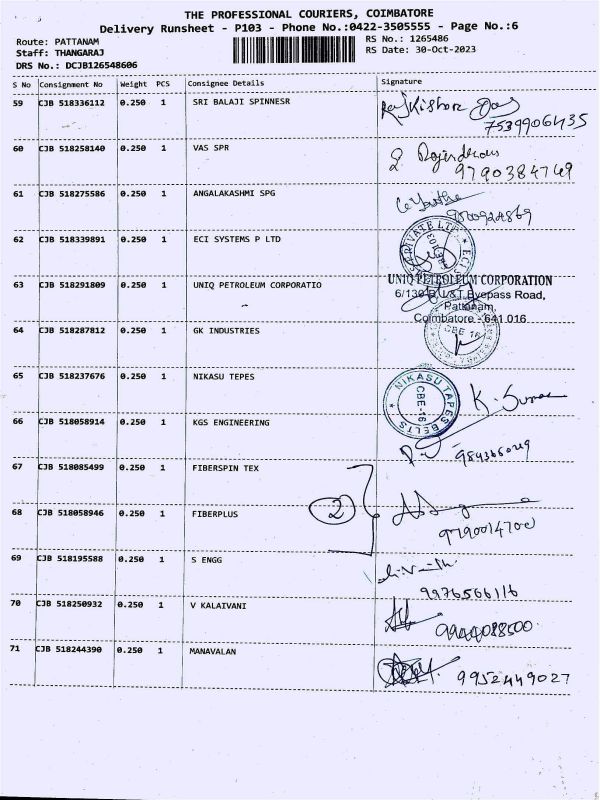 THE PROFESSIONAL COURIERS, COIMBATORE
Delivery Runsheet - P103 - Phone No.:0422-3505555 - Page No.:6
Route: PATTANAM
Staff: THANGARAJ
DRS No.: DCJB126548606
RS No.: 1265486
RS Date: 30-Oct-2023
S No Consignment No Weight PCS Consignee Details Signature
59 CJB 518336112 0.250 1 SRI BALAJI SPINNESR
Raj Kishor Das
7539906435
60 CJB 518258140 0.250 1 VAS SPR
9790384769
61 CJB 518275586 0.250 1 ANGALAKASHMI SPG
62 CJB 518339891 0.250 1 ECI SYSTEMS P LTD
63 CJB 518291809 0.250 1 UNIQ PETROLEUM CORPORATIO
UNIQ PETROLEUM CORPORATION
6/130 B, L&T Byepass Road,
Pattanam,
Coimbatore - 641 016
64 CJB 518287812 0.250 1 GK INDUSTRIES
CBE 16
65 CJB 518237676 0.250 1 NIKASU TEPES
NIKASU TAPES BELTS
CBE-16
66 CJB 518058914 0.250 1 KGS ENGINEERING
67 CJB 518085499 0.250 1 FIBERSPIN TEX
68 CJB 518058946 0.250 1 FIBERPLUS
2
9790014700
69 CJB 518195588 0.250 1 S ENGG
9976566116
70 CJB 518250932 0.250 1 V KALAIVANI
9944088500
71 CJB 518244390 0.250 1 MANAVALAN
9952449027